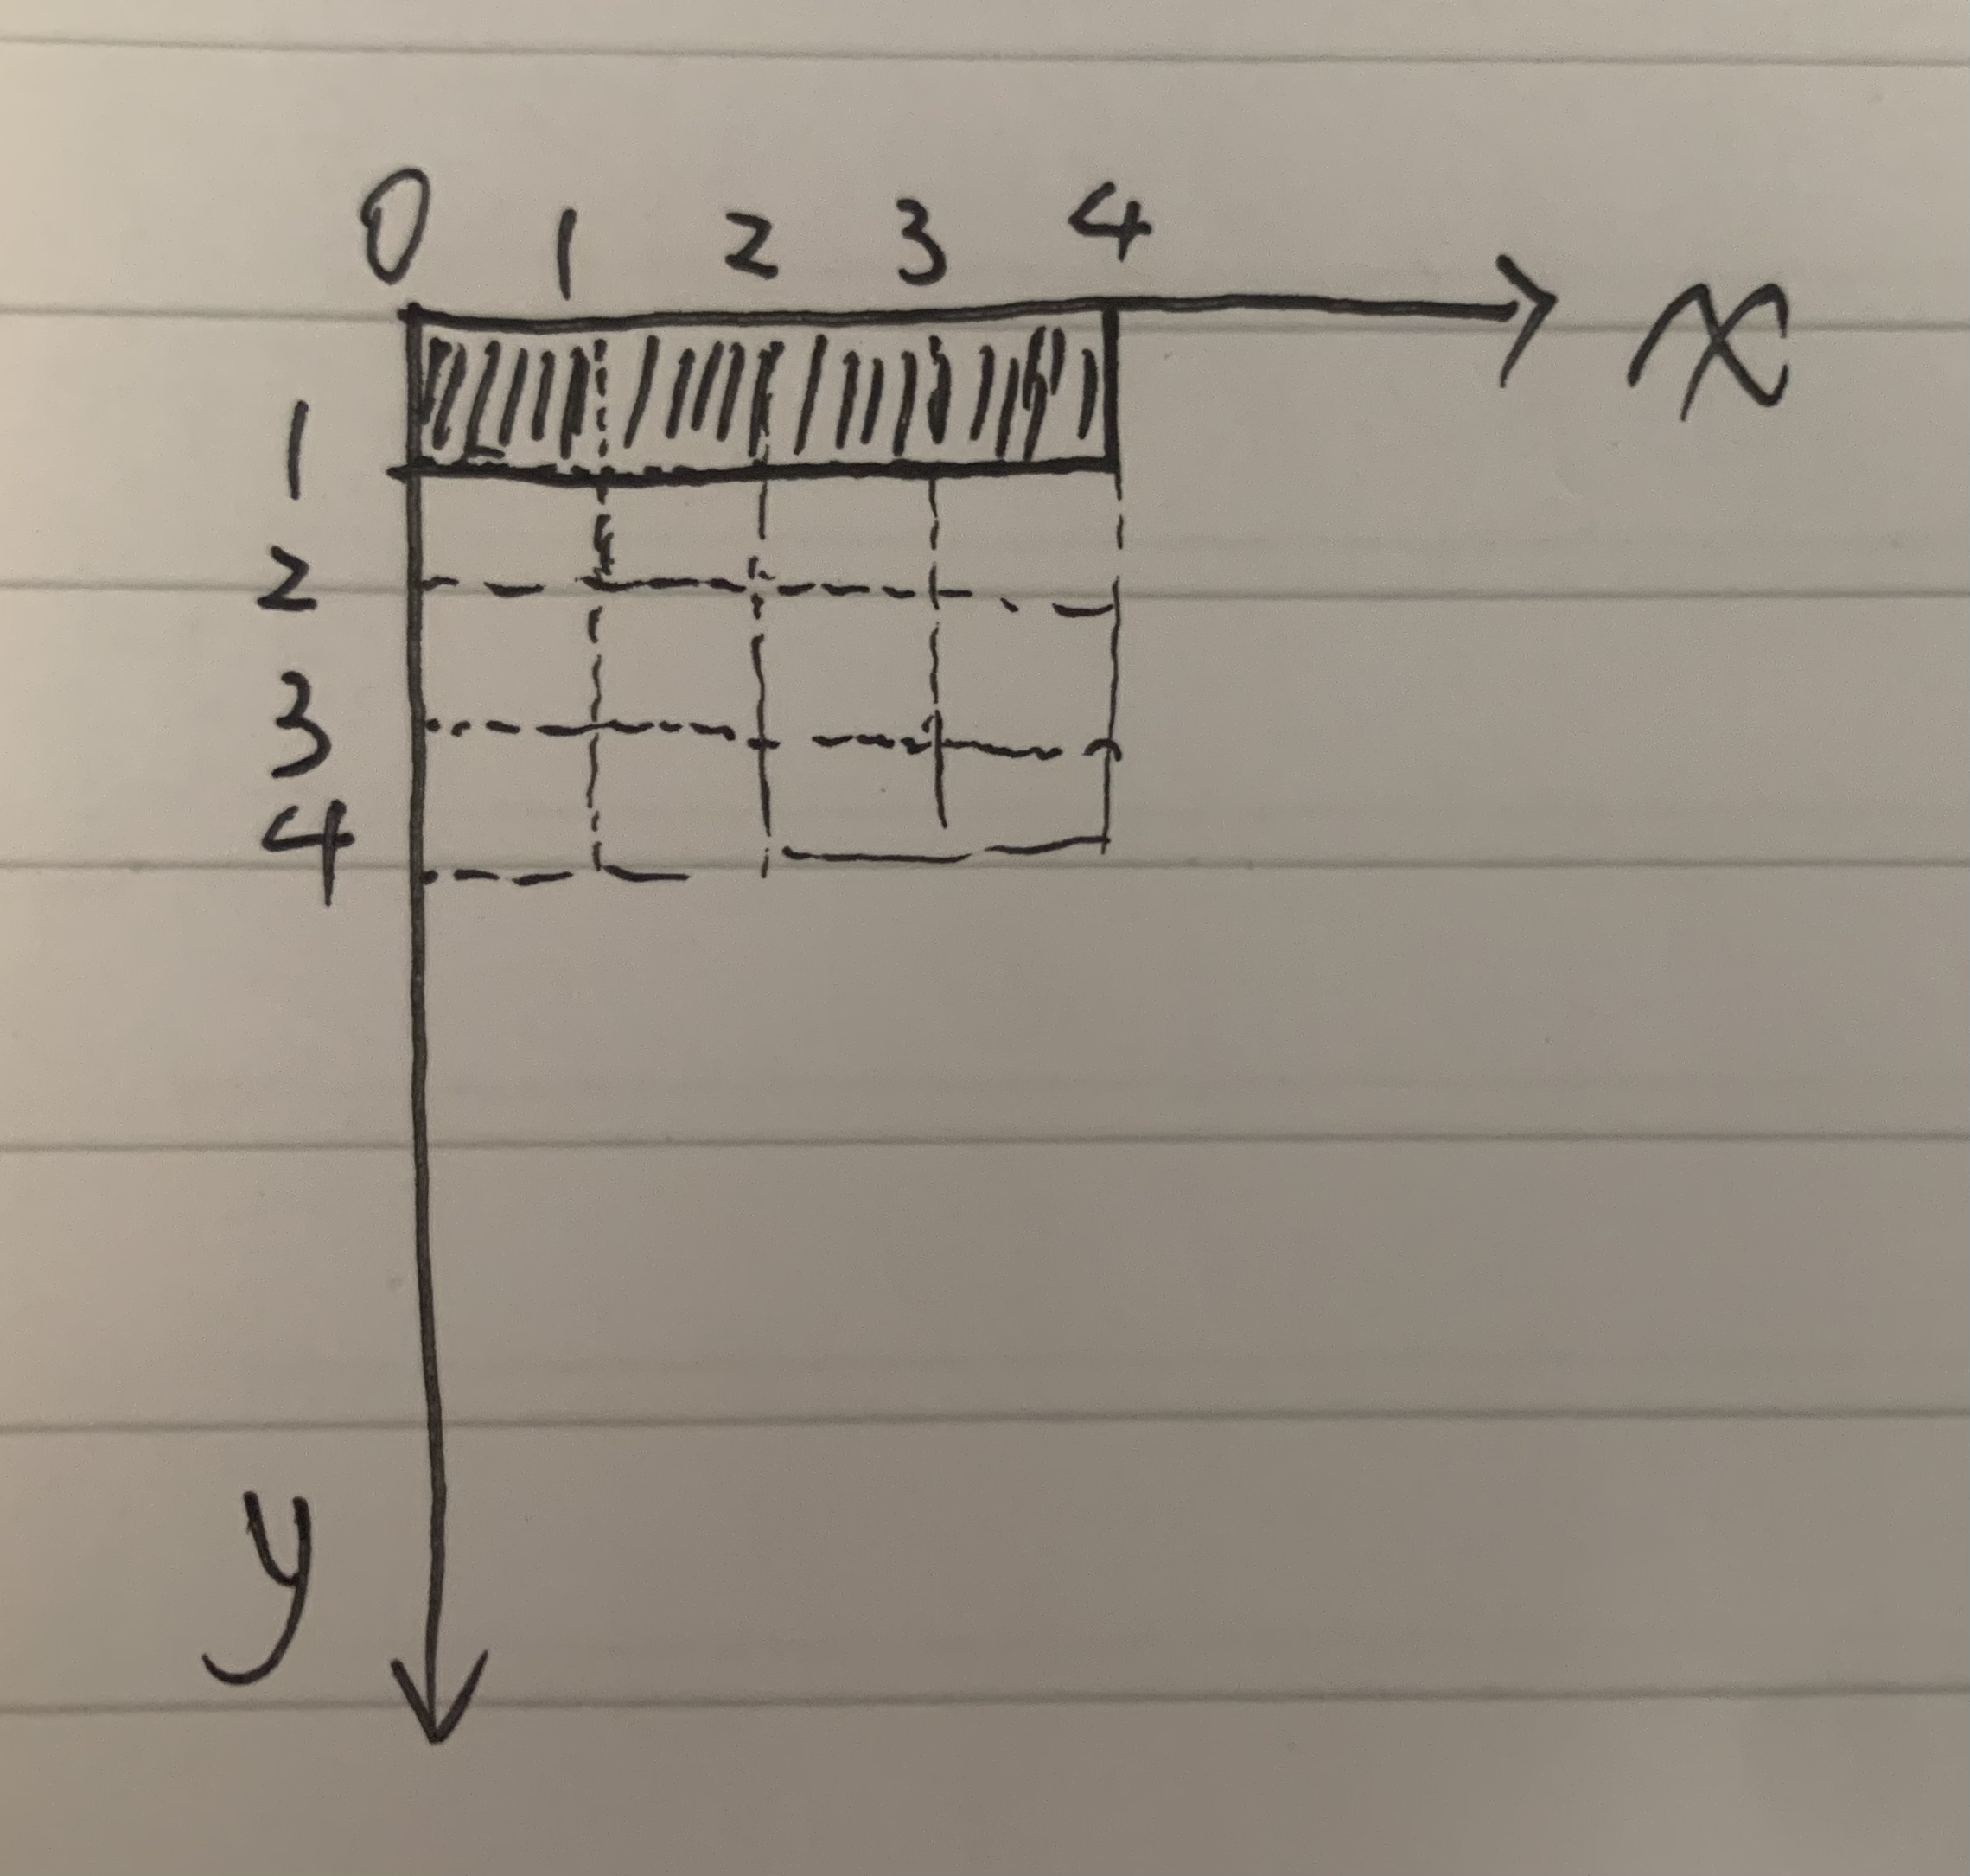 0 1 2 3 4
x
1
2
3
4
y